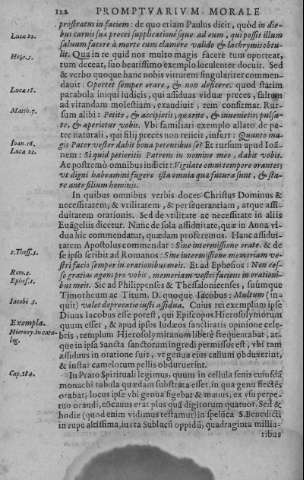 122 PROMPTVARIVM MORALE
prostratus in faciem: de quo etiam Paulus dicit, quòd in die-
Luca 22. bus carnis suæ preces supplicationesque ad eum, qui possit illum
saluum facere à morte cum clamore valido & lachrymis obtu-
Hebr.5. lit. Qua in re quid nor multo magis facere tum oporteat,
tum deceat, suo beatissimo exemplo luculenter docuit. Sed
& verbo quoque hanc nobis virtutem singulariter commen-
Luca 18. dauit: Oportet semper orare, & non deficere: quod statim
parabola iniqui iudicis, qui assidua viduæ preces, saltum
ad vitandam molestiam, exaudiuit, rem confirmat. Rur-
Matth.7. sum alibi: Petite, & accipietis, quærite, & inuenietis, pulsa-
te, & aperietur vobis. Vbi familiari exemplo allato de pa-
tre naturali, qui filij preces non reiicit, infert: Quanto ma-
Ioan.16. gis Pater vester dabit bona petentibus se? Et rursum apud Ioã-
Luca 21. nem: Si quid petieritis Patrem in nomine meo, dabit vobis.
Ac postremò omnibus indicit: Vigilate omni tempore orantes
vt digni habeamini fugere ista omnia quæ futura sunt, & sta-
re ante filium hominis.
In quibus omnibus verbis docet Christus Dominus &
necessitatem, & vtilitatem, & perseuerantiam, atque assi-
duitatem orationis. Sed de vtilitate ac necessitate in alijs
Euangelijs dicetur. Nunc de sola assiduitate, quæ in Anna vi-
dua hîc commendatur, quædam proferemus. Hanc assidui-
1.Thess.5. tatem Apostolus commendat: Sine intermissione orate. & de
se ipso scribit ad Romanos: Sine intermissione memoriam ve-
Rom.1. stri facio semper in orationibus meis. Et ad Ephesios: Non ces-
Ephes.1. so gratias agens pro vobis, memoriam vestri faciens in orationi-
bus meis. Sic ad Philippenses & Thessalonicenses, suumque
Timotheum ac Titum. D. quoque Iacobus: Multum (in-
Iacobi 5. quit) valet deprecatio iusti assidua. Cuius rei exemplum ipse
Exempla. Diuus Iacobus esse potest, qui Episcopus Hierosolymorum
Hierony.in cata- quum esset, & apud ipsos Iudæos sanctitatis opinione cele-
log. bris, templum Hierosolymitanum liberè frequentabat, at-
que in ipsa Sancta sanctorum ingredi permissus est, vbi tam
assiduus in oratione fuit, vt genua eius callum obduxerint,
& instar camelorum pellis obduruerint.
Cap.184. In Prato Spirituali legimus, quum in cellula senis cuiusdã
monachi tabula quædam substrata esset, in qua genu flectẽs
orabat, locus ipse vbi genua figebat & manus, ex vsu perpe-
tuo orandi, cõcauus erat plus quã digitorum quatuor. Sed &
hodie (quod etiam vidimus testamur) in spelũca S. Benedicti
in rupe altissima, iuxta Sublacũ oppidũ, quadraginta millia-
ribus